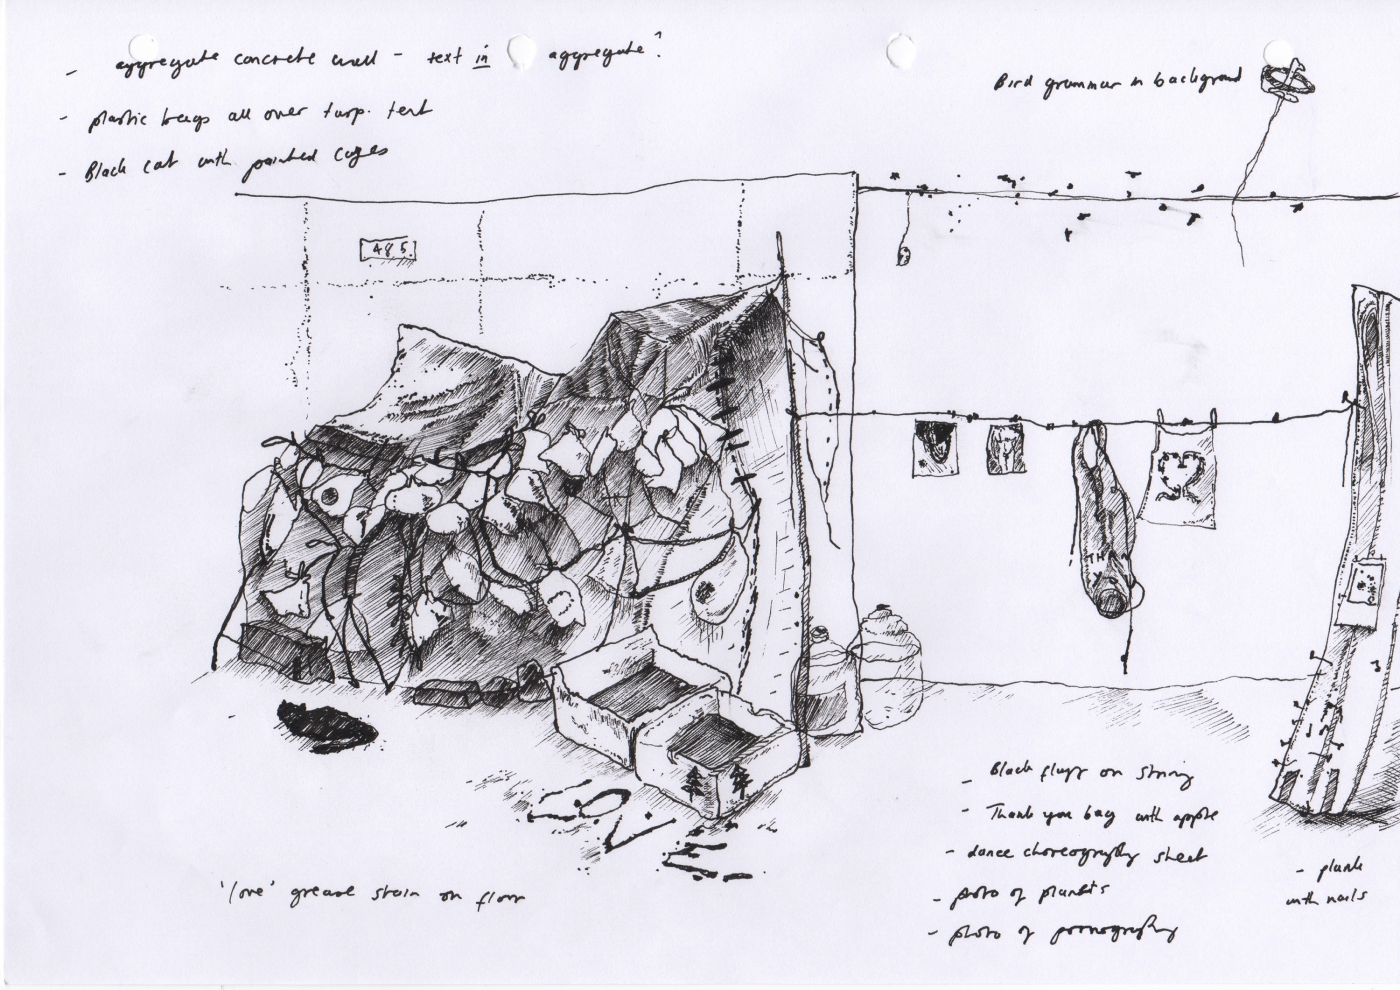 - aggregate concrete wall - text in aggregate?
- plastic bags all over tarp. tent
- Black cat with painted
Bird grammar in background
485.
THAN
LOVE
- Black flags on string
- Thank you bag with apple
- dance choreography sheet
- photo of planets
- photo of pornography
- plank
with nails
'love' grease stain on floor